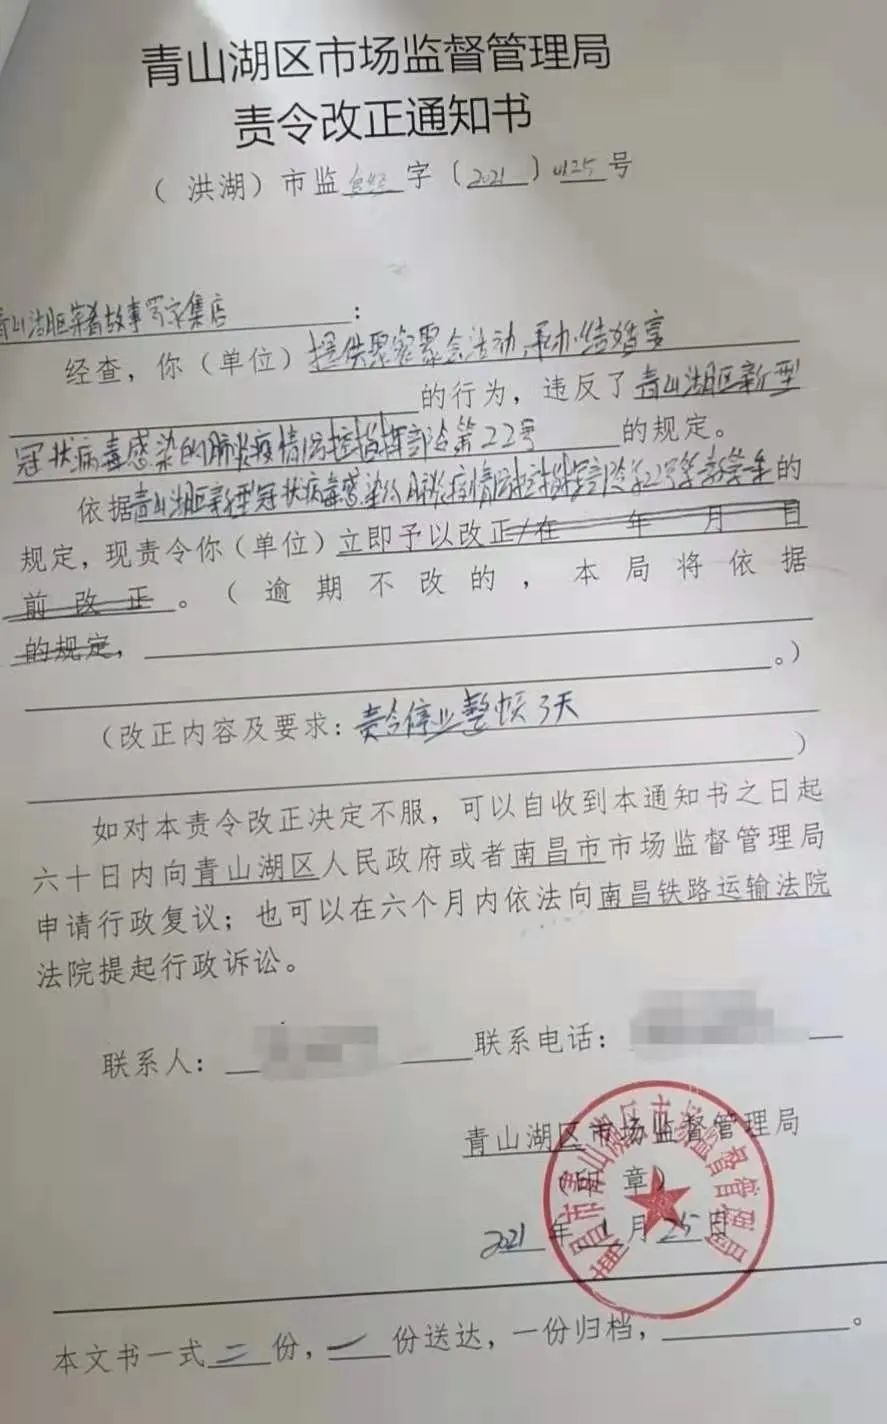 青山湖区市场监督管理局
责令改正通知书
(洪湖)市监食经字〔2021〕0125号
青山湖区宴肴故事罗家集店:
经查,你(单位)提供聚餐聚会活动,承办结婚宴
的行为,违反了青山湖区新型
冠状病毒感染的肺炎疫情防控指挥部令第22号的规定。
依据青山湖区新型冠状病毒感染的肺炎疫情防控指挥部令第22号第条的
规定,现责令你(单位)立即予以改正/在 年 月 日
前改正。(逾期不改的,本局将依据
的规定,
。)
(改正内容及要求:责令停业整顿3天
)
如对本责令改正决定不服,可以自收到本通知书之日起
六十日内向青山湖区人民政府或者南昌市市场监督管理局
申请行政复议;也可以在六个月内依法向南昌铁路运输法院
法院提起行政诉讼。
联系人: 联系电话:
青山湖区市场监督管理局
(印章)
2021年1月25日
南昌市青山湖区市场监督管理局
本文书一式二份,一份送达,一份归档, 。